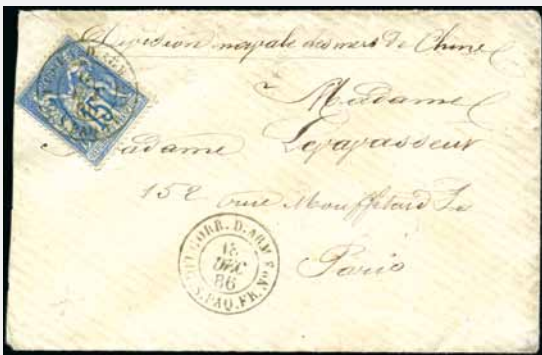 Division navale des mers de Chine
Madame
Madame Levavasseur
152 rue Mouffetard
Paris
CORR. D. ARM
18
DEC
86
PAQ. FR. No
15